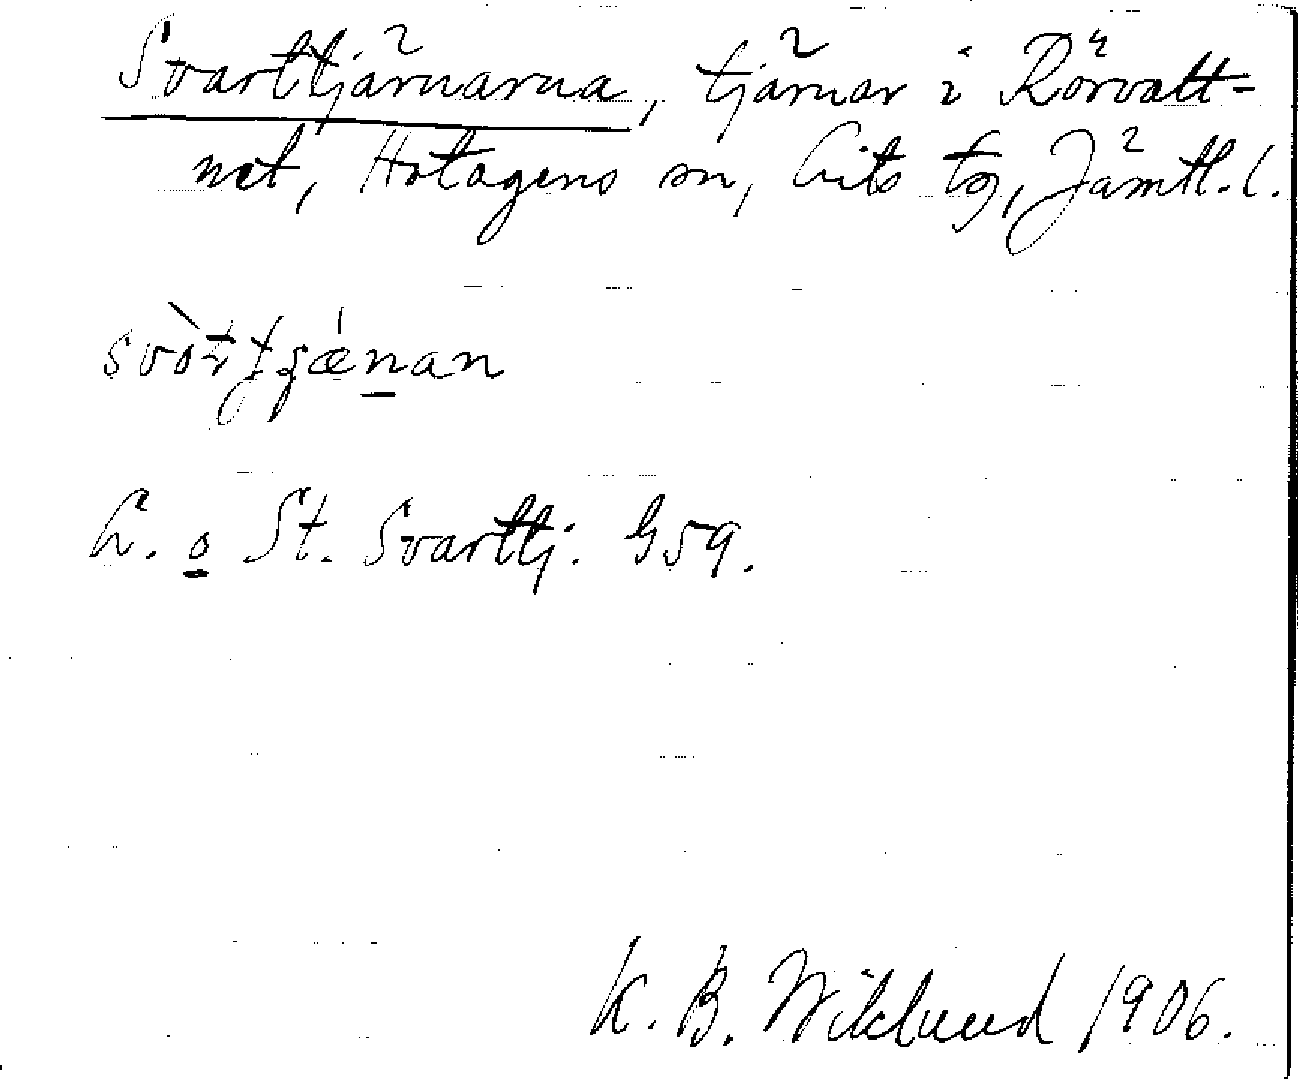 Svarttjärnarna, tjärnar i Rörvatt-
net, Hotagens sn, Lits tg, Jämtl. l.
svòttjǽnan
L. o St. Svarttj. G59.
K. B. Wiklund 1906.